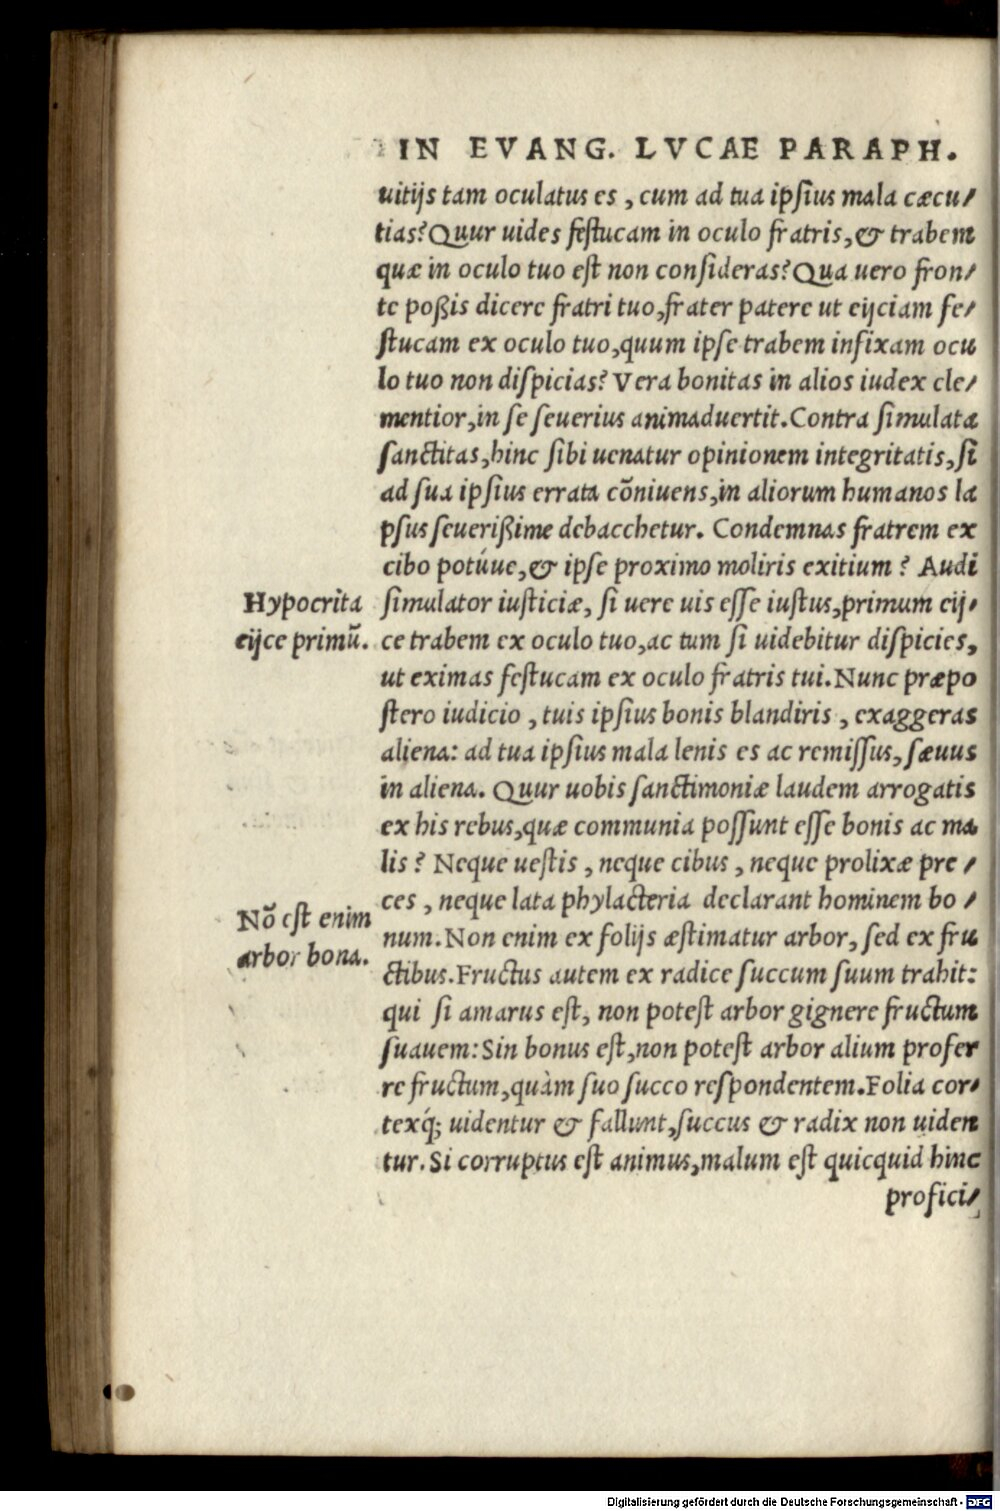 IN EVANG. LVCAE PARAPH.
uitijs tam oculatus es, cum ad tua ipsius mala cæcu/
tias? Quur uides festucam in oculo fratris, & trabem
quæ in oculo tuo est non consideras? Qua uero fron/
te poßis dicere fratri tuo, frater patere ut eijciam fe/
stucam ex oculo tuo, quum ipse trabem infixam ocu
lo tuo non dispicias? Vera bonitas in alios iudex cle/
mentior, in se seuerius animaduertit. Contra simulata
sanctitas, hinc sibi uenatur opinionem integritatis, si
ad sua ipsius errata cõniuens, in aliorum humanos la
psus seuerißime debacchetur. Condemnas fratrem ex
cibo potúue, & ipse proximo moliris exitium? Audi
Hypocrita
simulator iusticiæ, si uere uis esse iustus, primum eij/
eijce primũ.
ce trabem ex oculo tuo, ac tum si uidebitur dispicies,
ut eximas festucam ex oculo fratris tui. Nunc præpo
stero iudicio, tuis ipsius bonis blandiris, exaggeras
aliena: ad tua ipsius mala lenis es ac remissus, sæuus
in aliena. Quur uobis sanctimoniæ laudem arrogatis
ex his rebus, quæ communia possunt esse bonis ac ma
lis? Neque uestis, neque cibus, neque prolixæ pre/
ces, neque lata phylacteria declarant hominem bo/
Nõ est enim
num. Non enim ex folijs æstimatur arbor, sed ex fru
arbor bona.
ctibus. Fructus autem ex radice succum suum trahit:
qui si amarus est, non potest arbor gignere fructum
suauem: Sin bonus est, non potest arbor alium profer
re fructum, quàm suo succo respondentem. Folia cor/
texq́; uidentur & fallunt, succus & radix non uiden
tur. Si corruptus est animus, malum est quicquid hinc
profici/
Digitalisierung gefördert durch die Deutsche Forschungsgemeinschaft - DFG